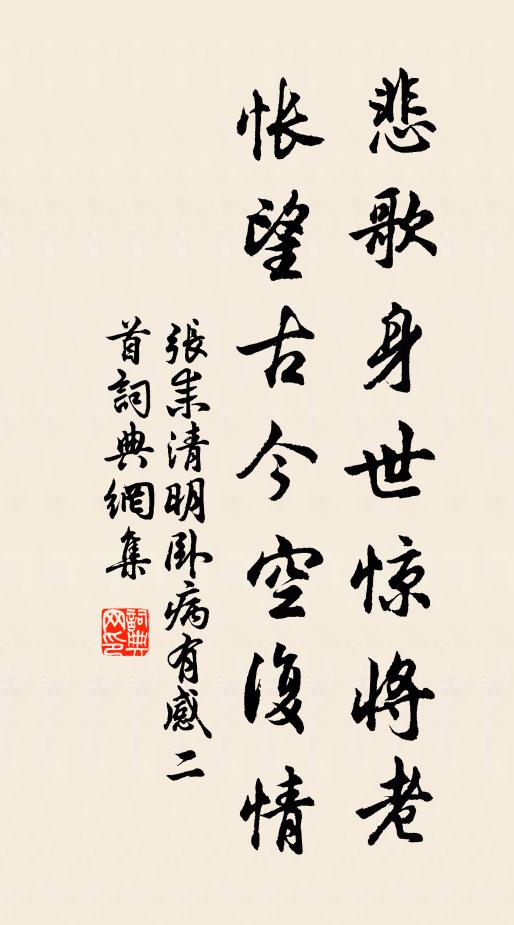 悲歌身世惊将老
怅望古今空復情
張耒清明卧病有感二
首詞典網集
詞典
网印